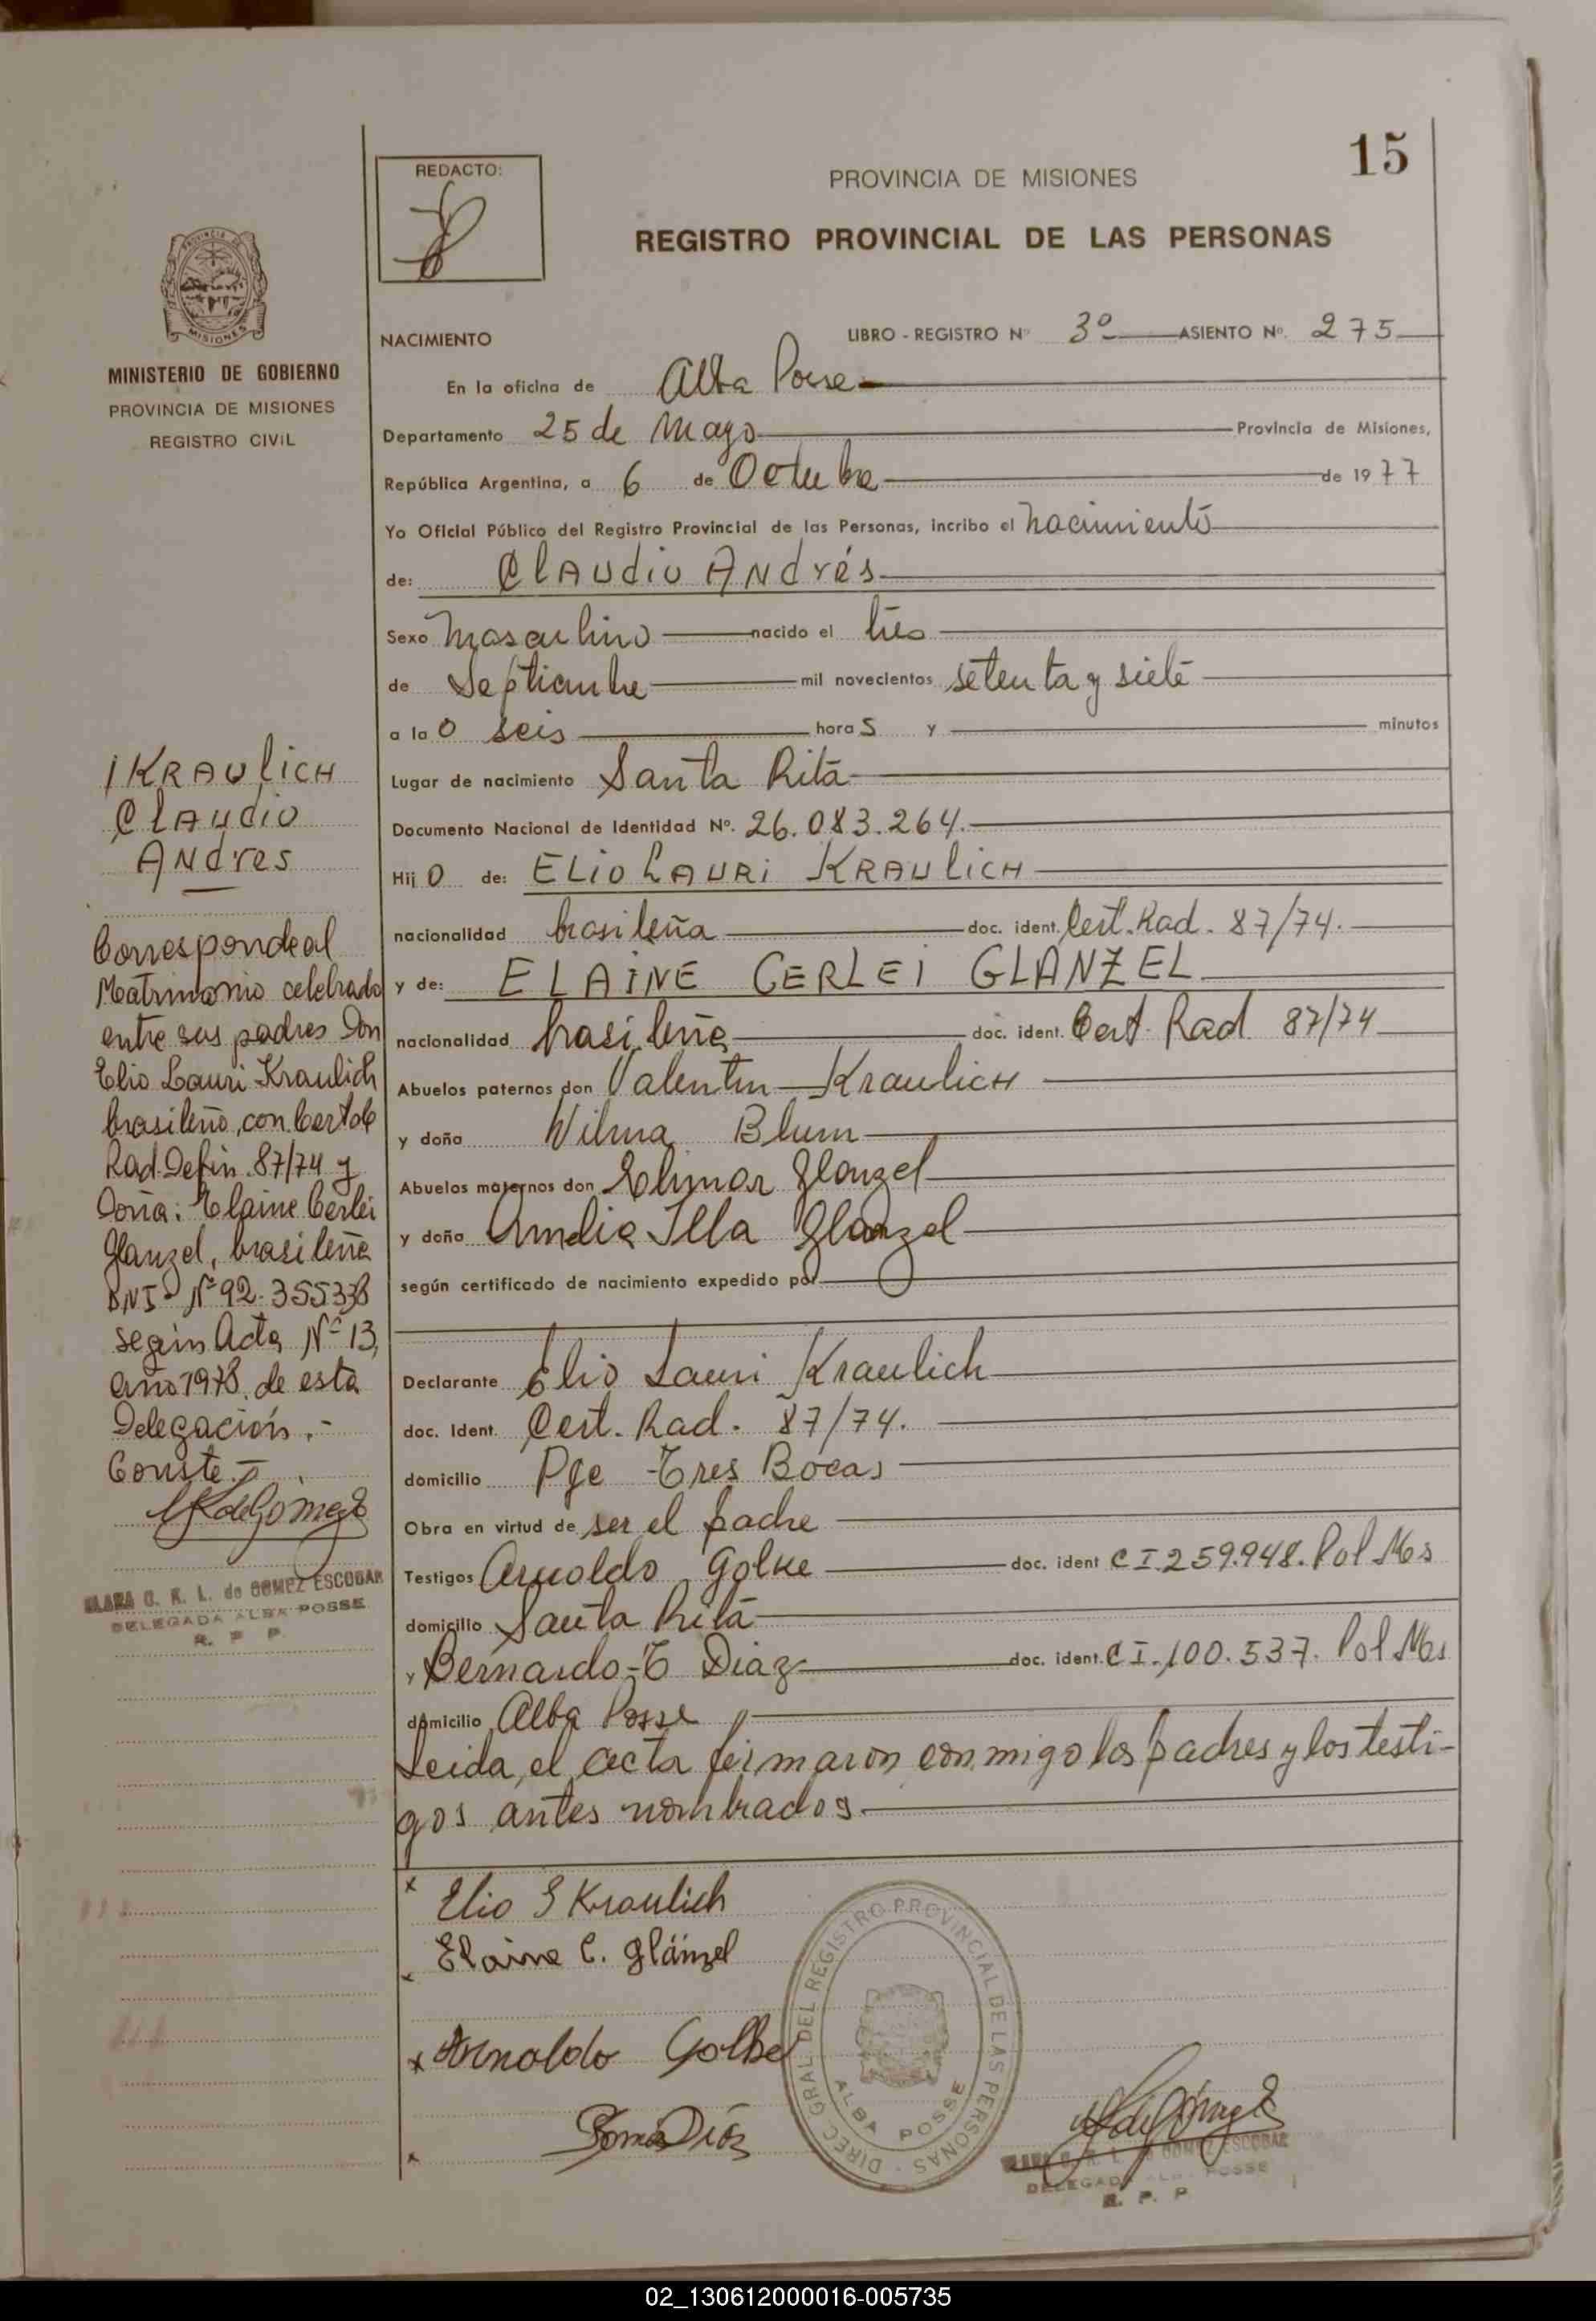 15
REDACTO:
PROVINCIA DE MISIONES
REGISTRO PROVINCIAL DE LAS PERSONAS
MINISTERIO DE GOBIERNO
PROVINCIA DE MISIONES
REGISTRO CIVIL
NACIMIENTO
LIBRO - REGISTRO Nº 3º ASIENTO Nº. 275
En la oficina de Alba Posse
Departamento 25 de Mayo Provincia de Misiones,
República Argentina, a 6 de Octubre de 1977
Yo Oficial Público del Registro Provincial de las Personas, incribo el nacimiento
de: Claudio Andrés
Sexo Masculino nacido el tres
de Septiembre mil novecientos setenta y siete
a la o seis hora s y minutos
Lugar de nacimiento Santa Rita
Documento Nacional de Identidad Nº. 26.083.264.
Hij o de: Elio Lauri Kraulich
nacionalidad brasileña doc. ident. Cert. Rad. 87/74.
y de: ELAINE CERLEI GLANZEL
nacionalidad brasileña doc. ident. Cert. Rad 87/74
Abuelos paternos don Valentin Kraulich
y doña Wilma Blum
Abuelos maternos don Glanzel
y doña Amelia Illa Glanzel
según certificado de nacimiento expedido por
Declarante Elio Lauri Kraulich
doc. Ident. Cert. Rad. 87/74.
domicilio Pje Tres Bocas
Obra en virtud de ser el padre
Testigos Arnoldo Golke doc. ident C I 259.948. Pol Mos
domicilio Santa Rita
y Bernardo T Diaz doc. ident. C I. 100.537. Pol Mos
domicilio Alba Posse
Leida el acta firmaron conmigo los padres y los testi-
gos antes nombrados.
KRAULICH
Claudio
Andres
Corresponde al
Matrimonio celebrado
entre sus padres Don
Elio Lauri Kraulich
brasileño, con Cert de
Rad. Defin. 87/74 y
Doña: Elaine Cerlei
Glanzel, brasileña
DNI Nº 92.355338
según Acta Nº 13,
año 1978 de esta
Delegación.-
Conste.-
CLARA O. K. L. de GOMEZ ESCOBAR
DELEGADA ALBA POSSE
R. P. P.
x Elio L Kraulich
x Elaine C. Glänzel
x Arnoldo Golke
x
DIREC GRAL DEL REGISTRO PROVINCIAL DE LAS PERSONAS -
ALBA POSSE
CLARA O. K. L. de GOMEZ ESCOBAR
DELEGADA ALBA POSSE
R. P. P
02_130612000016-005735